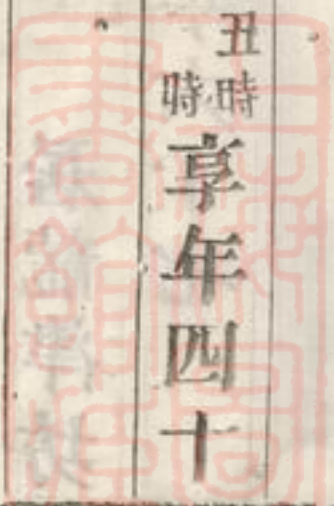 丑時
時
享年四十